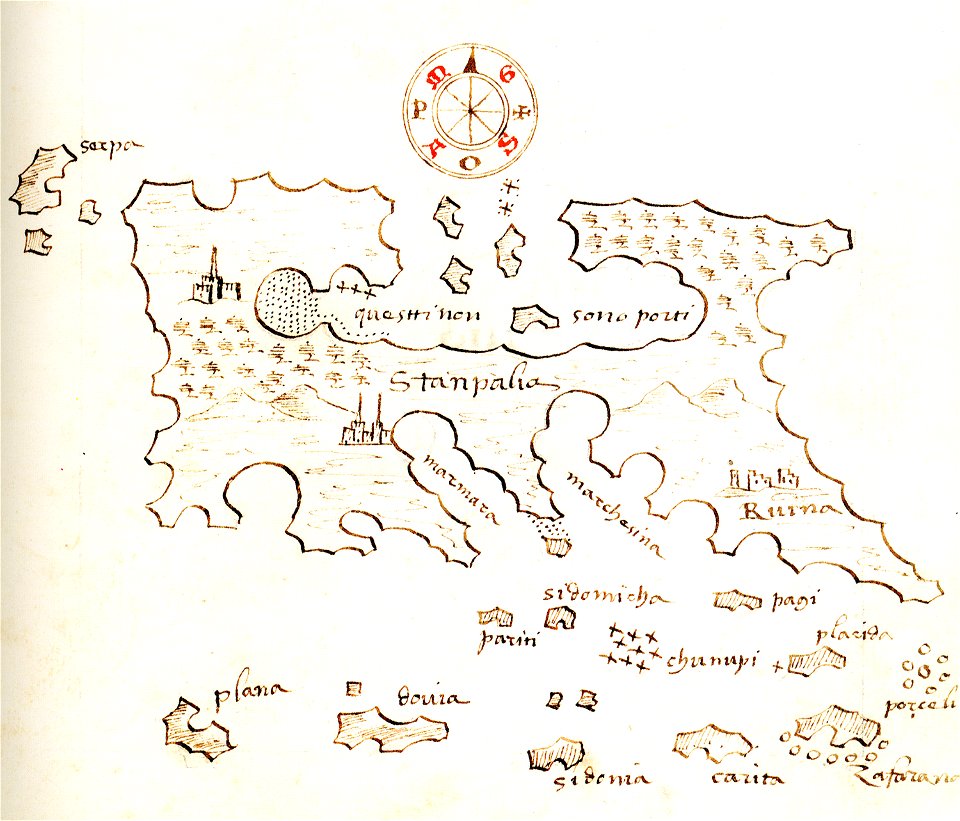 M G
P +
A S
O
serpa
questti non sono porti
Stanpalia
marmara
marchesina
Ruina
sidonicha
pagi
pariti
chunupi
plarida
plana
douia
porceli
sidonia
carita
Zafarano